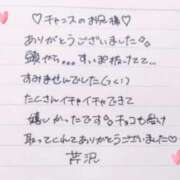 ♡チャンスのお兄様♡
ありがとうございました。
頭から…すっぽ抜けてて
すみませんでした(>_<)
たくさんイチャイチャできて
嬉しかったです♡チョコも受け
取ってくれてありがとうございました♡
芹沢